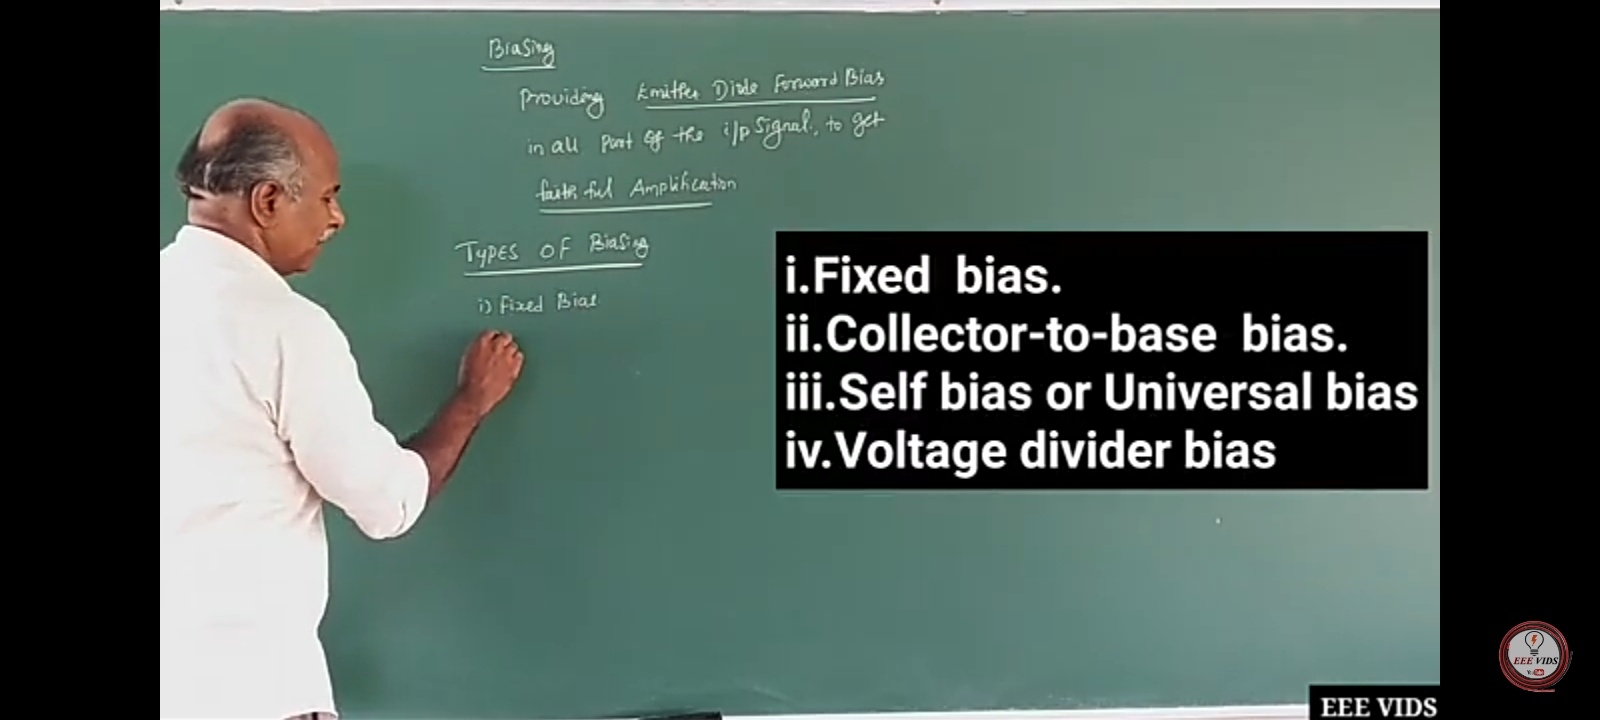 Biasing
Providing Emitter Diode Forward Bias
in all Part Of the i/p Signal, to get
faithful Amplification
TYPES OF Biasing
i) Fixed Bias
i.Fixed bias.
ii.Collector-to-base bias.
iii.Self bias or Universal bias
iv.Voltage divider bias
EEE VIDS
EEE VIDS